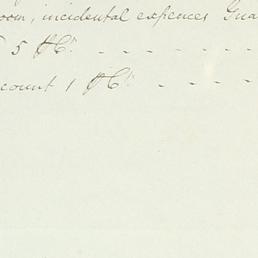 oom, incidental expences Gua
5 ⅌ Ct. - - - - - - -
count 1 ⅌ Ct. - - - -